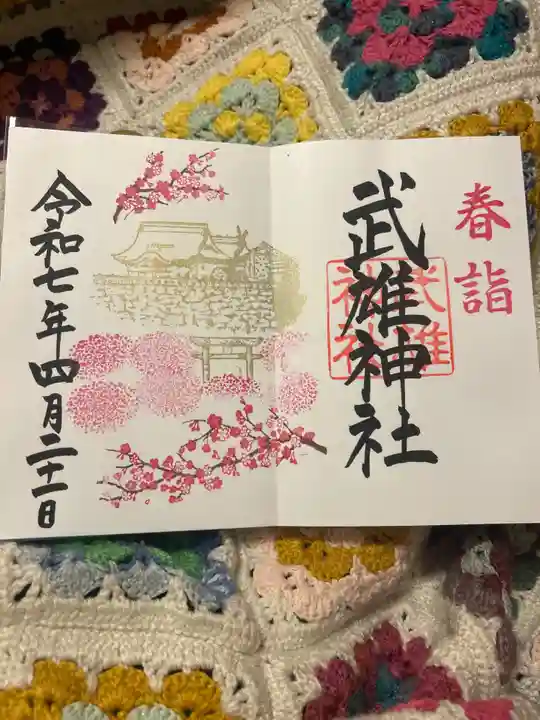 春詣
武雄神社
武雄神社
令和七年四月二十一日